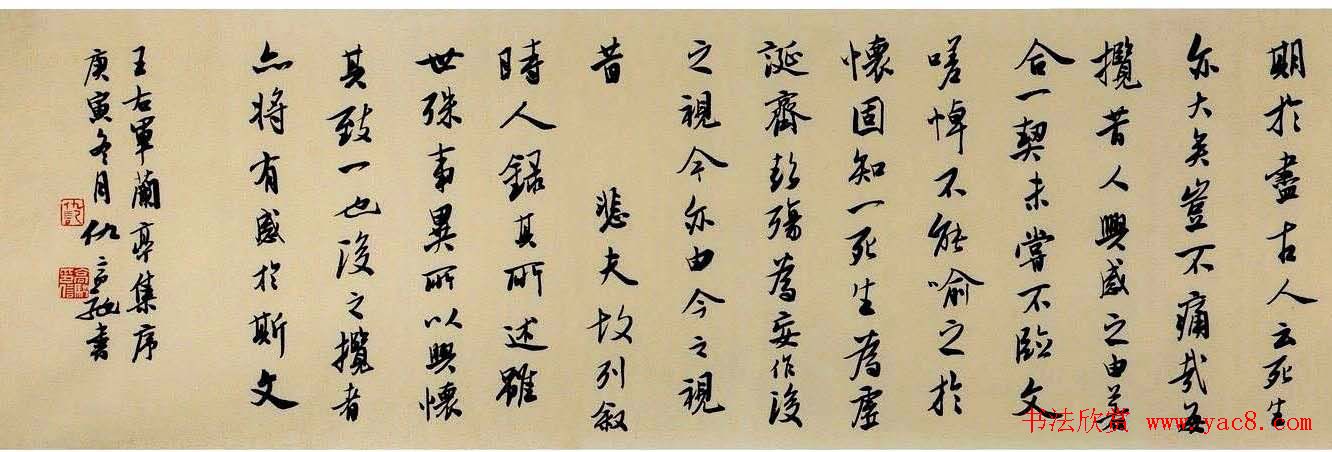 期於盡古人云死生
亦大矣豈不痛哉每
攬昔人興感之由若
合一契未嘗不臨文
嗟悼不能喻之於
懷固知一死生為虛
誕齊彭殤為妄作後
之視今亦由今之視
昔 悲夫故列叙
時人錄其所述雖
世殊事異所以興懷
其致一也後之攬者
亦將有感於斯文
王右軍蘭亭集序
庚寅冬月仇高馳書
书法欣赏 www.yac8.com